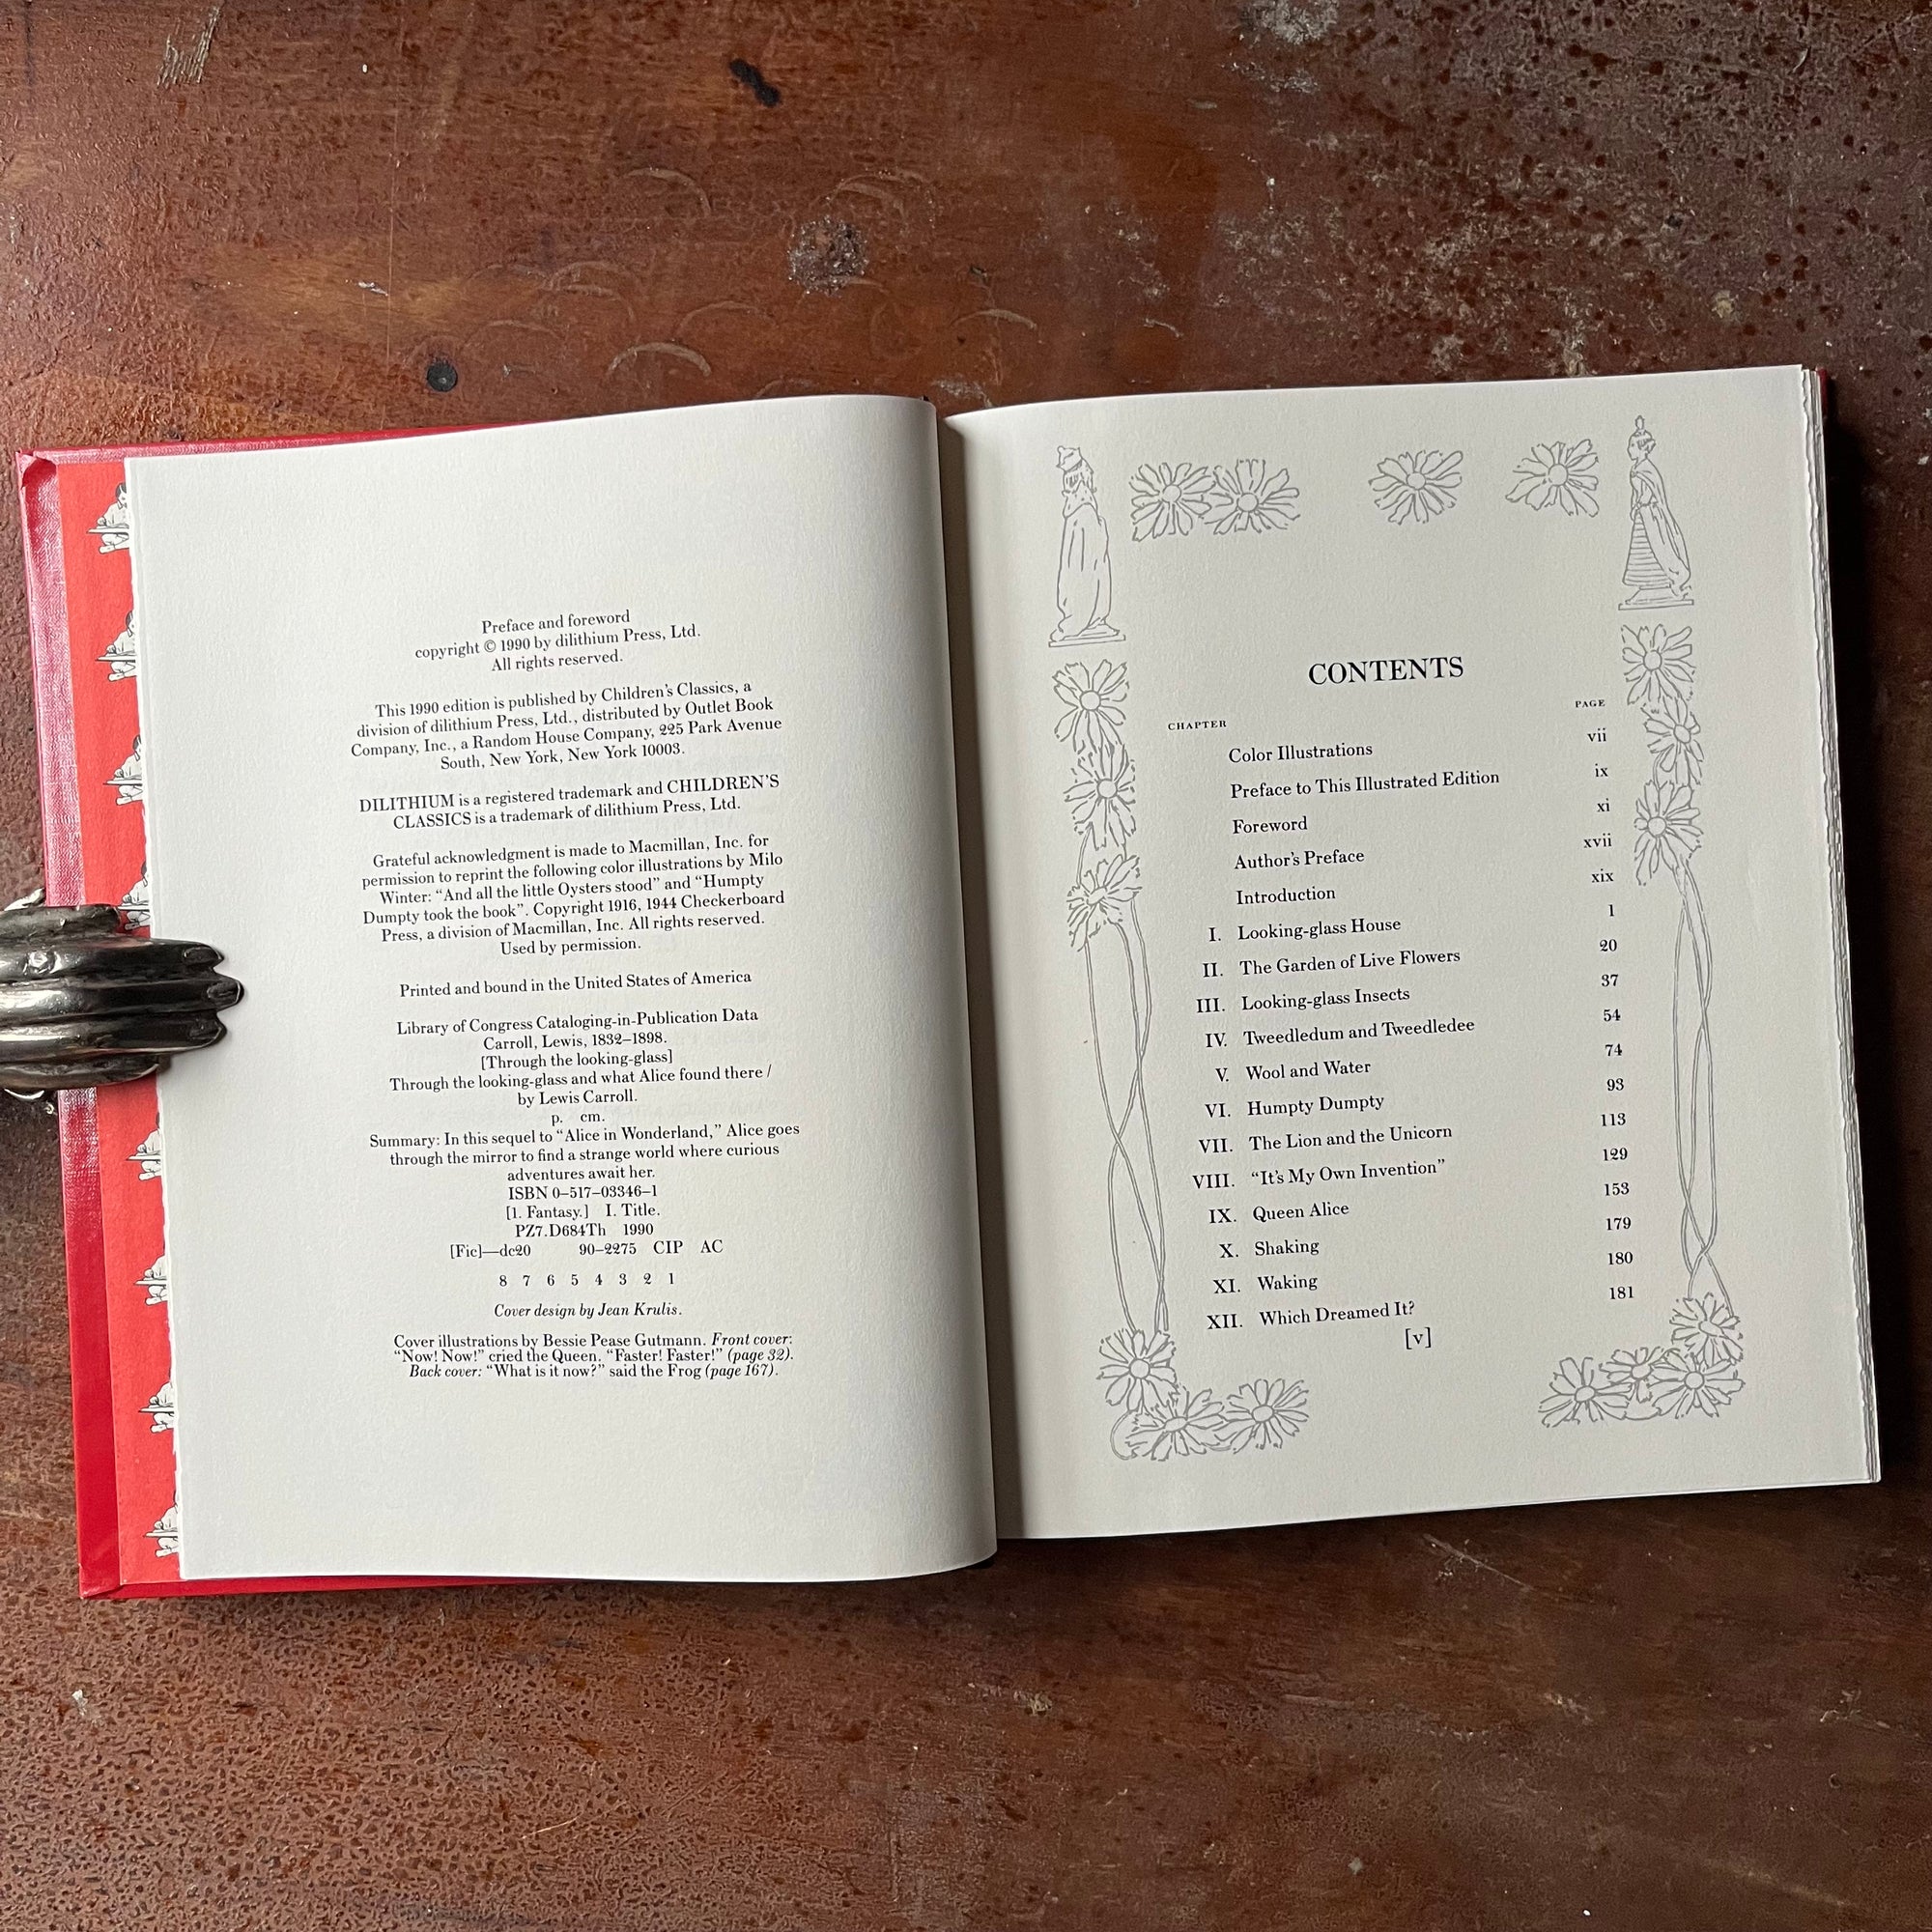 Preface and foreword
copyright © 1990 by dilithium Press, Ltd.
All rights reserved.
This 1990 edition is published by Children's Classics, a
division of dilithium Press, Ltd., distributed by Outlet Book
Company, Inc., a Random House Company, 225 Park Avenue
South, New York, New York 10003.
DILITHIUM is a registered trademark and CHILDREN'S
CLASSICS is a trademark of dilithium Press, Ltd.
Grateful acknowledgment is made to Macmillan, Inc. for
permission to reprint the following color illustrations by Milo
Winter: “And all the little Oysters stood” and “Humpty
Dumpty took the book”. Copyright 1916, 1944 Checkerboard
Press, a division of Macmillan, Inc. All rights reserved.
Used by permission.
Printed and bound in the United States of America
Library of Congress Cataloging-in-Publication Data
Carroll, Lewis, 1832–1898.
[Through the looking-glass]
Through the looking-glass and what Alice found there /
by Lewis Carroll.
p. cm.
Summary: In this sequel to “Alice in Wonderland,” Alice goes
through the mirror to find a strange world where curious
adventures await her.
ISBN 0–517–03346–1
[1. Fantasy.] I. Title.
PZ7.D684Th 1990
[Fic]—dc20 90–2275 CIP AC
8 7 6 5 4 3 2 1
Cover design by Jean Krulis.
Cover illustrations by Bessie Pease Gutmann. Front cover:
“Now! Now!” cried the Queen. “Faster! Faster!” (page 32).
Back cover: “What is it now?” said the Frog (page 167).
CONTENTS
CHAPTER PAGE
Color Illustrations vii
Preface to This Illustrated Edition ix
Foreword xi
Author's Preface xvii
Introduction xix
I. Looking-glass House 1
II. The Garden of Live Flowers 20
III. Looking-glass Insects 37
IV. Tweedledum and Tweedledee 54
V. Wool and Water 74
VI. Humpty Dumpty 93
VII. The Lion and the Unicorn 113
VIII. “It's My Own Invention” 129
IX. Queen Alice 153
X. Shaking 179
XI. Waking 180
XII. Which Dreamed It? 181
[v]